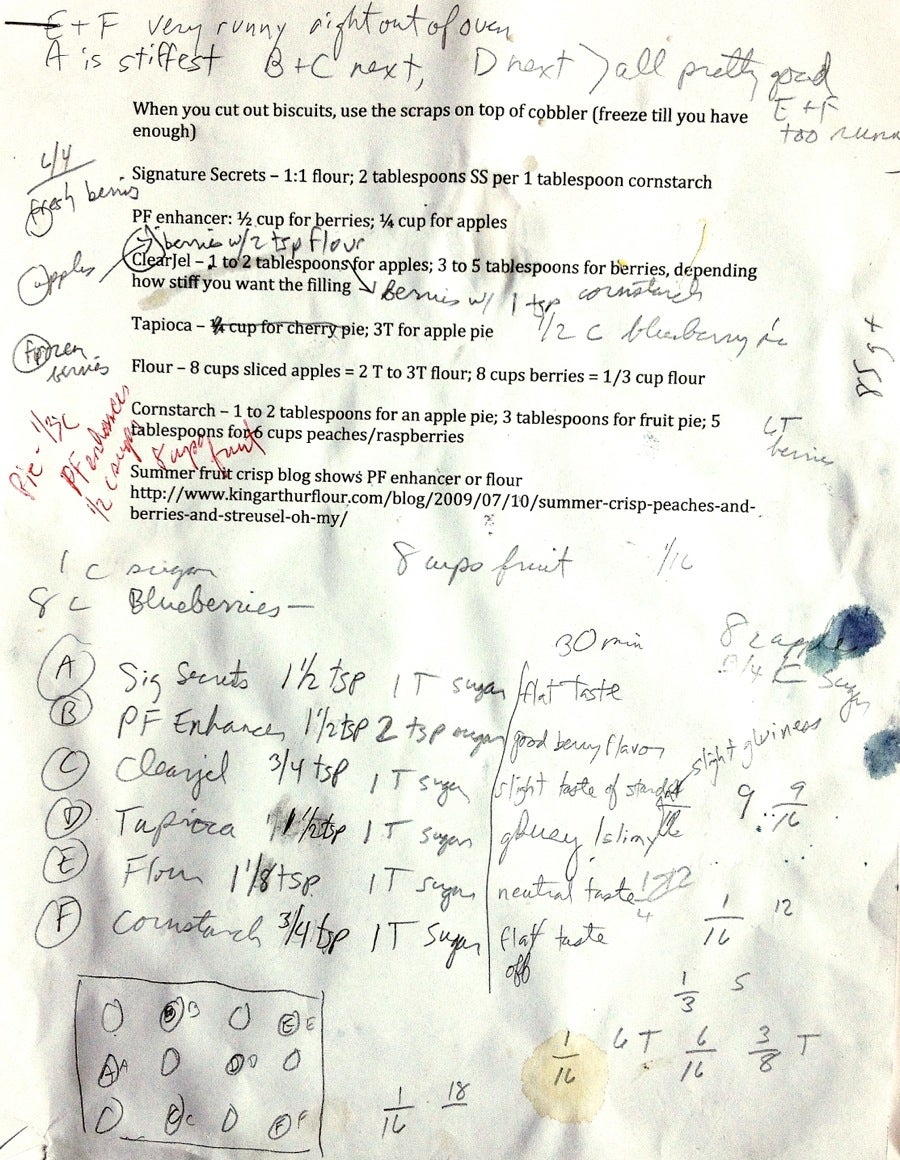 E + F very runny right out of oven
A is stiffest B + C next, D next > all pretty good
E + F
too runn
When you cut out biscuits, use the scraps on top of cobbler (freeze till you have
enough)
Signature Secrets – 1:1 flour; 2 tablespoons SS per 1 tablespoon cornstarch
fresh berries
PF enhancer: ½ cup for berries; ¼ cup for apples
berries w/ 2 tsp flour
apples
ClearJel – 1 to 2 tablespoons for apples; 3 to 5 tablespoons for berries, depending
how stiff you want the filling
Berries w/ 1 tsp cornstarch
Tapioca – ¼ cup for cherry pie; 3T for apple pie
1/2 c blueberry
frozen
berries
Flour – 8 cups sliced apples = 2 T to 3T flour; 8 cups berries = 1/3 cup flour
Cornstarch – 1 to 2 tablespoons for an apple pie; 3 tablespoons for fruit pie; 5
tablespoons for 6 cups peaches/raspberries
berries
Pie - 1/3 C
PF enhancer
1/2 c sugar
8 cups fruit
Summer fruit crisp blog shows PF enhancer or flour
http://www.kingarthurflour.com/blog/2009/07/10/summer-crisp-peaches-and-
berries-and-streusel-oh-my/
1 c sugar
8 cups fruit 1/16
8 c Blueberries —
30 min
8 c apple
3/4 C sugar
A Sig Secrets 1½ tsp 1 T sugar flat taste
B PF Enhancer 1½ tsp 2 tsp sugar good berry flavor
slight glueiness
C Clearjel 3/4 tsp 1 T sugar slight taste of starch
9 9/16
D Tapioca 1½ tsp 1 T sugar gluey / slimy
E Flour 1 1/8 tsp 1 T sugar neutral taste
1/16 12
F Cornstarch 3/4 tsp 1 T sugar flat taste
off
1/3 5
B E
1/16 6 T 6/16 3/8 T
A D
1/16 18
C F